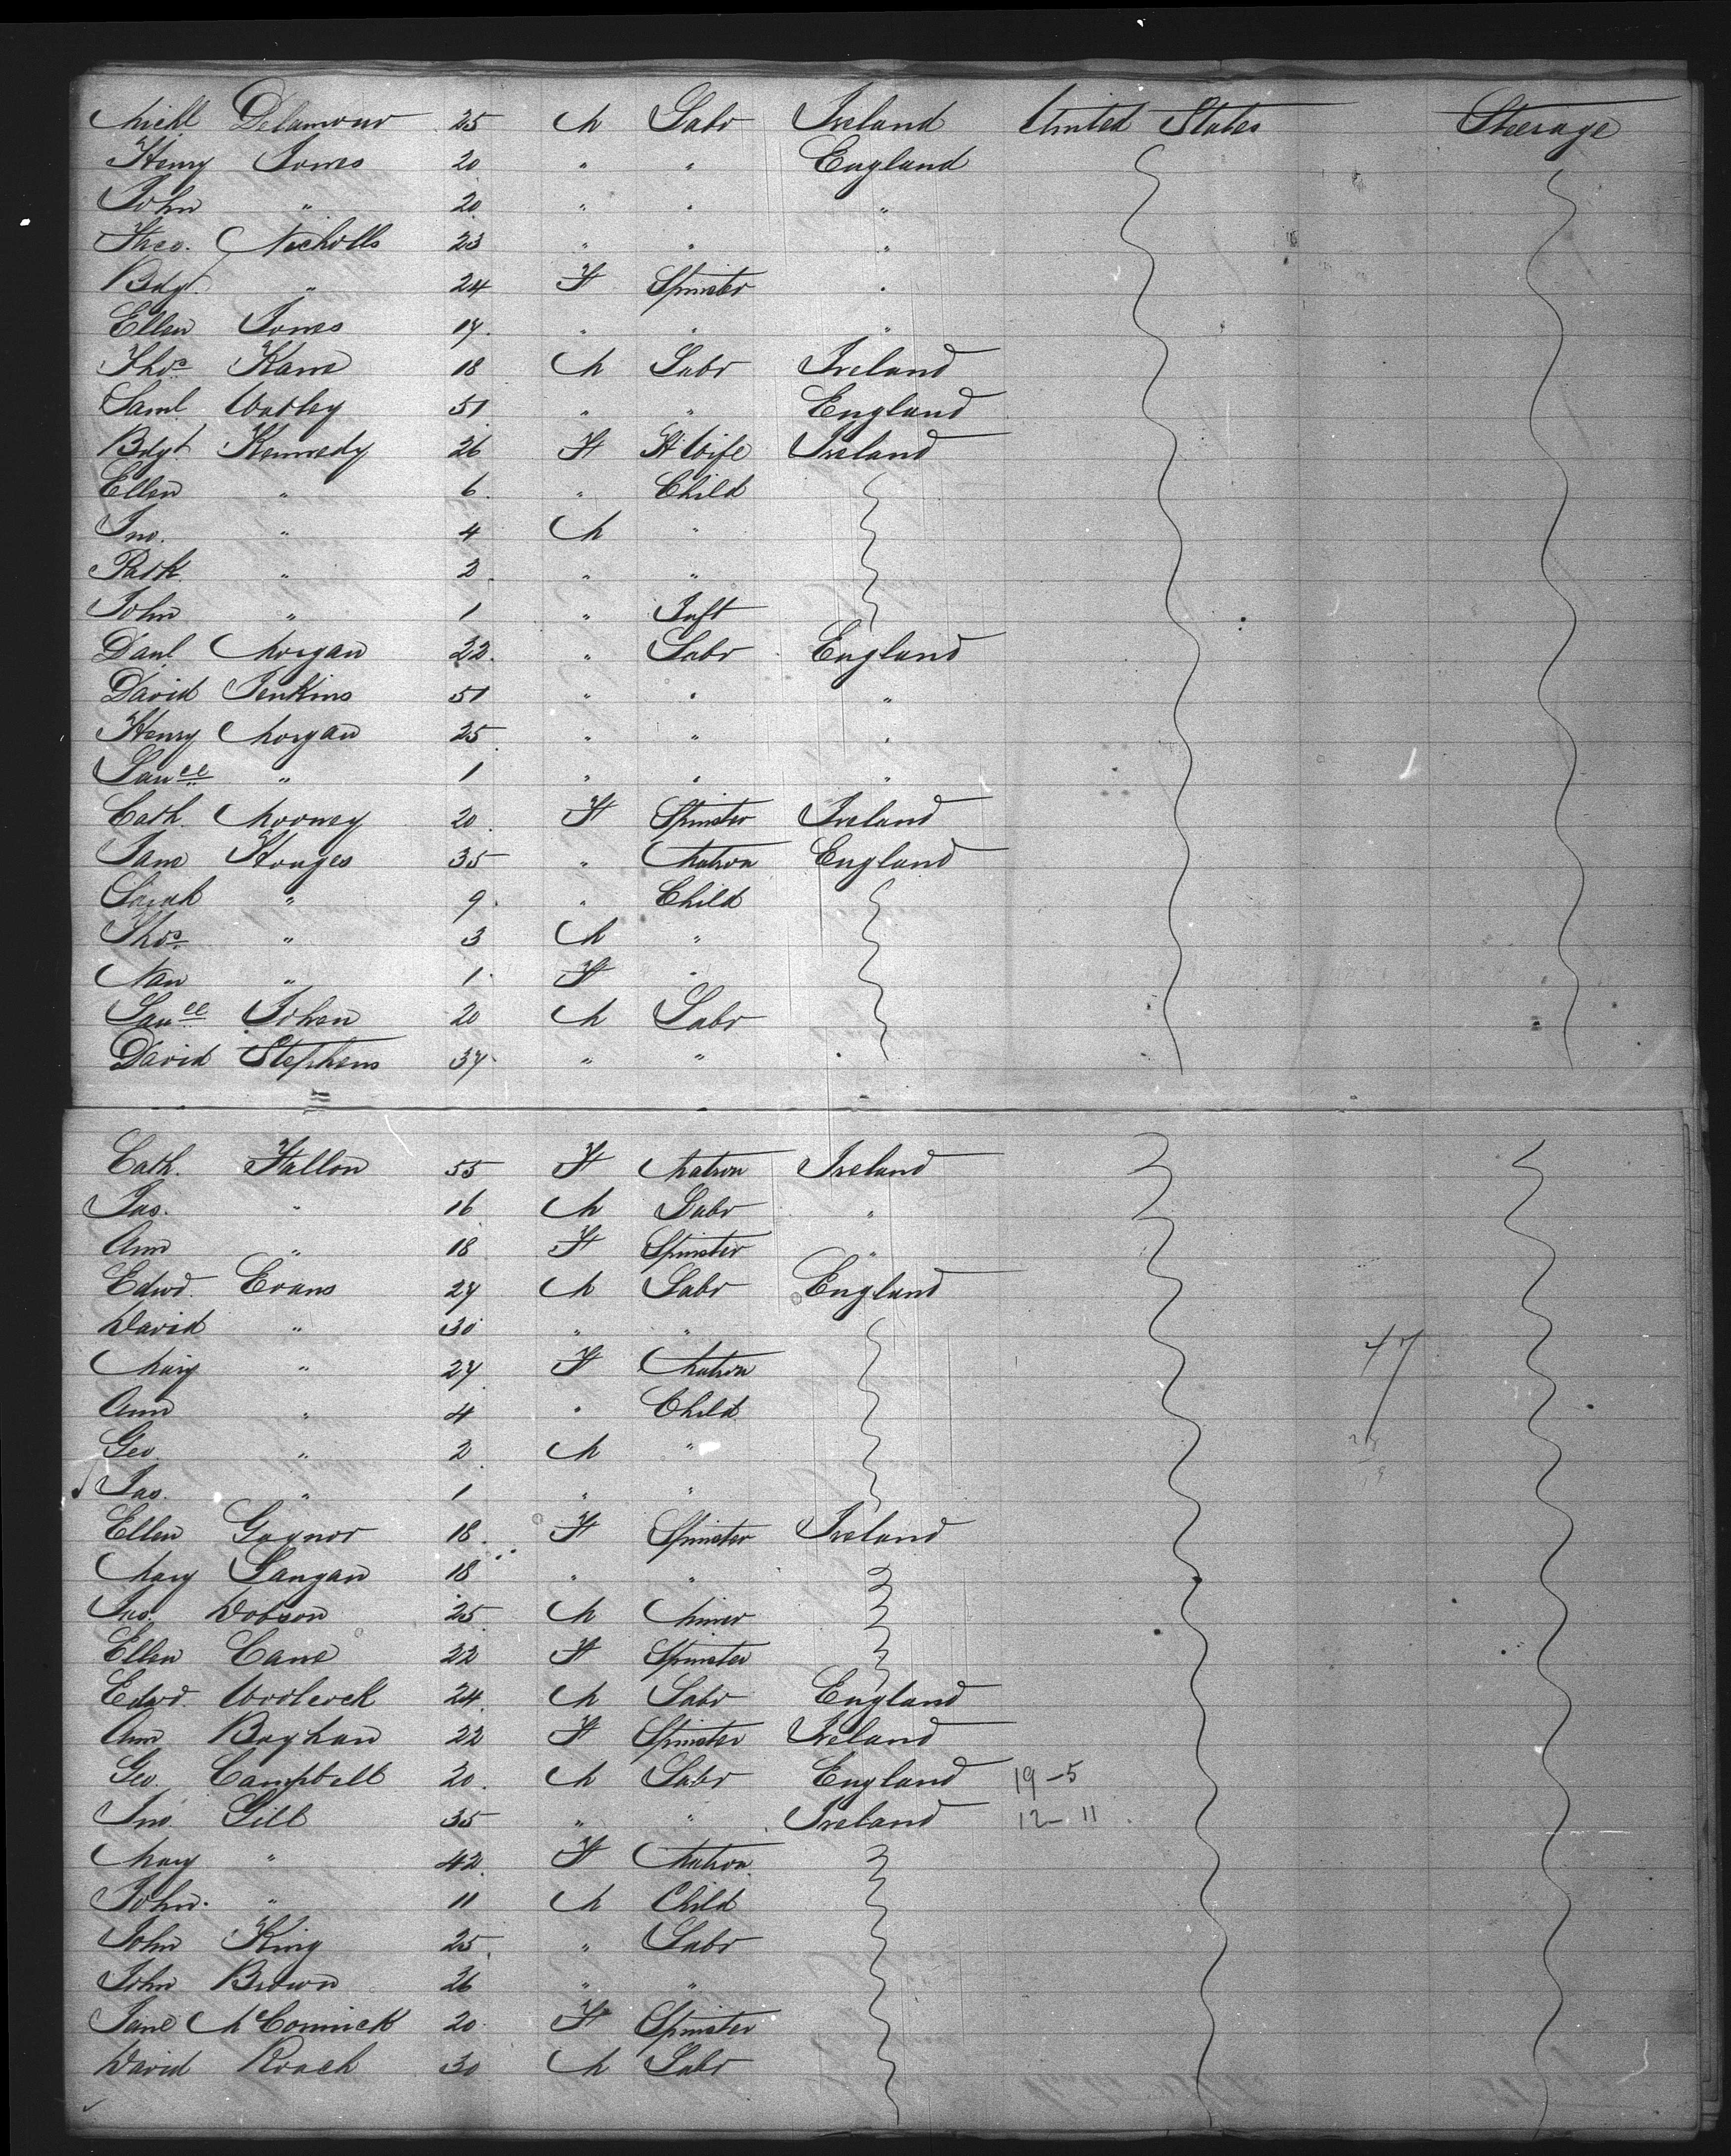 Michl Delamour 25 M Labr Ireland United States Steerage
Henry Jones 20 " " England
John " 20 " " "
Theo. Nicholls 23 " " "
Bdgt. " 24 F Spinster "
Ellen Jones 17 " " "
Thos Kane 18 M Labr Ireland
Saml. 51 " " England
Bdgt. Kennedy 26 F H Wife Ireland
Ellen " 6 " Child
Jno. " 4 M "
Patk. " 2 " "
John " 1 " Inft
Danl. Morgan 22 " Labr England
David Jenkins 51 " " "
Henry Morgan 25 " " "
" 1 " " "
Cath. Mooney 20 F Spinster Ireland
Jane 35 " Matron England
Sarah " 9 " Child
Thos " 3 M "
" 1 F "
20 M Labr
David Stephens 37 " "
Cath. Fallon 55 F Matron Ireland
Jas. " 16 M Labr "
Ann " 18 F Spinster "
Edwd. Evans 27 M Labr England
David " 30 " "
Mary " 27 F Matron
47
Ann " 4 " Child
Geo. " 2 M "
Jas. " 1 " "
Ellen Gaynor 18 F Spinster Ireland
Mary Langan 18 " "
Jas. Dobson 25 M Miner
Ellen Cane 22 F Spinster
Edwd. Woolcock 24 M Labr England
Ann 22 F Spinster Ireland
Geo. Campbell 20 M Labr England 19-5
Jno. Gill 35 " " Ireland 12-11
Mary " 42 F Matron
John. " 11 M Child
John King 25 " Labr
John Brown 26 " "
Jane McCormick 20 F Spinster
David Roach 30 M Labr